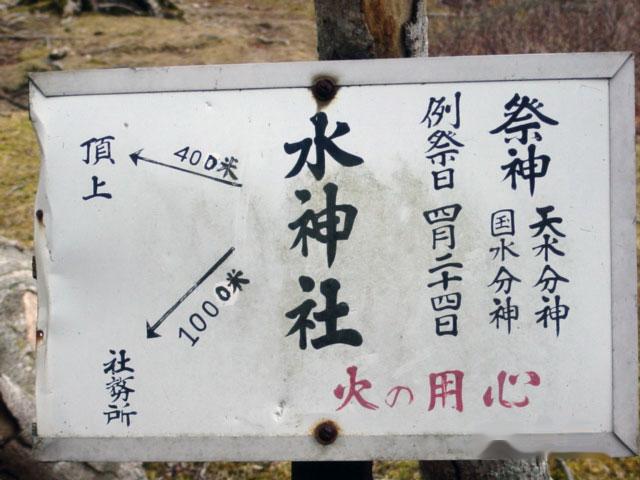 祭神
天水分神
国水分神
例祭日 四月二十四日
水神社
火の用心
400米
頂上
1000米
社務所